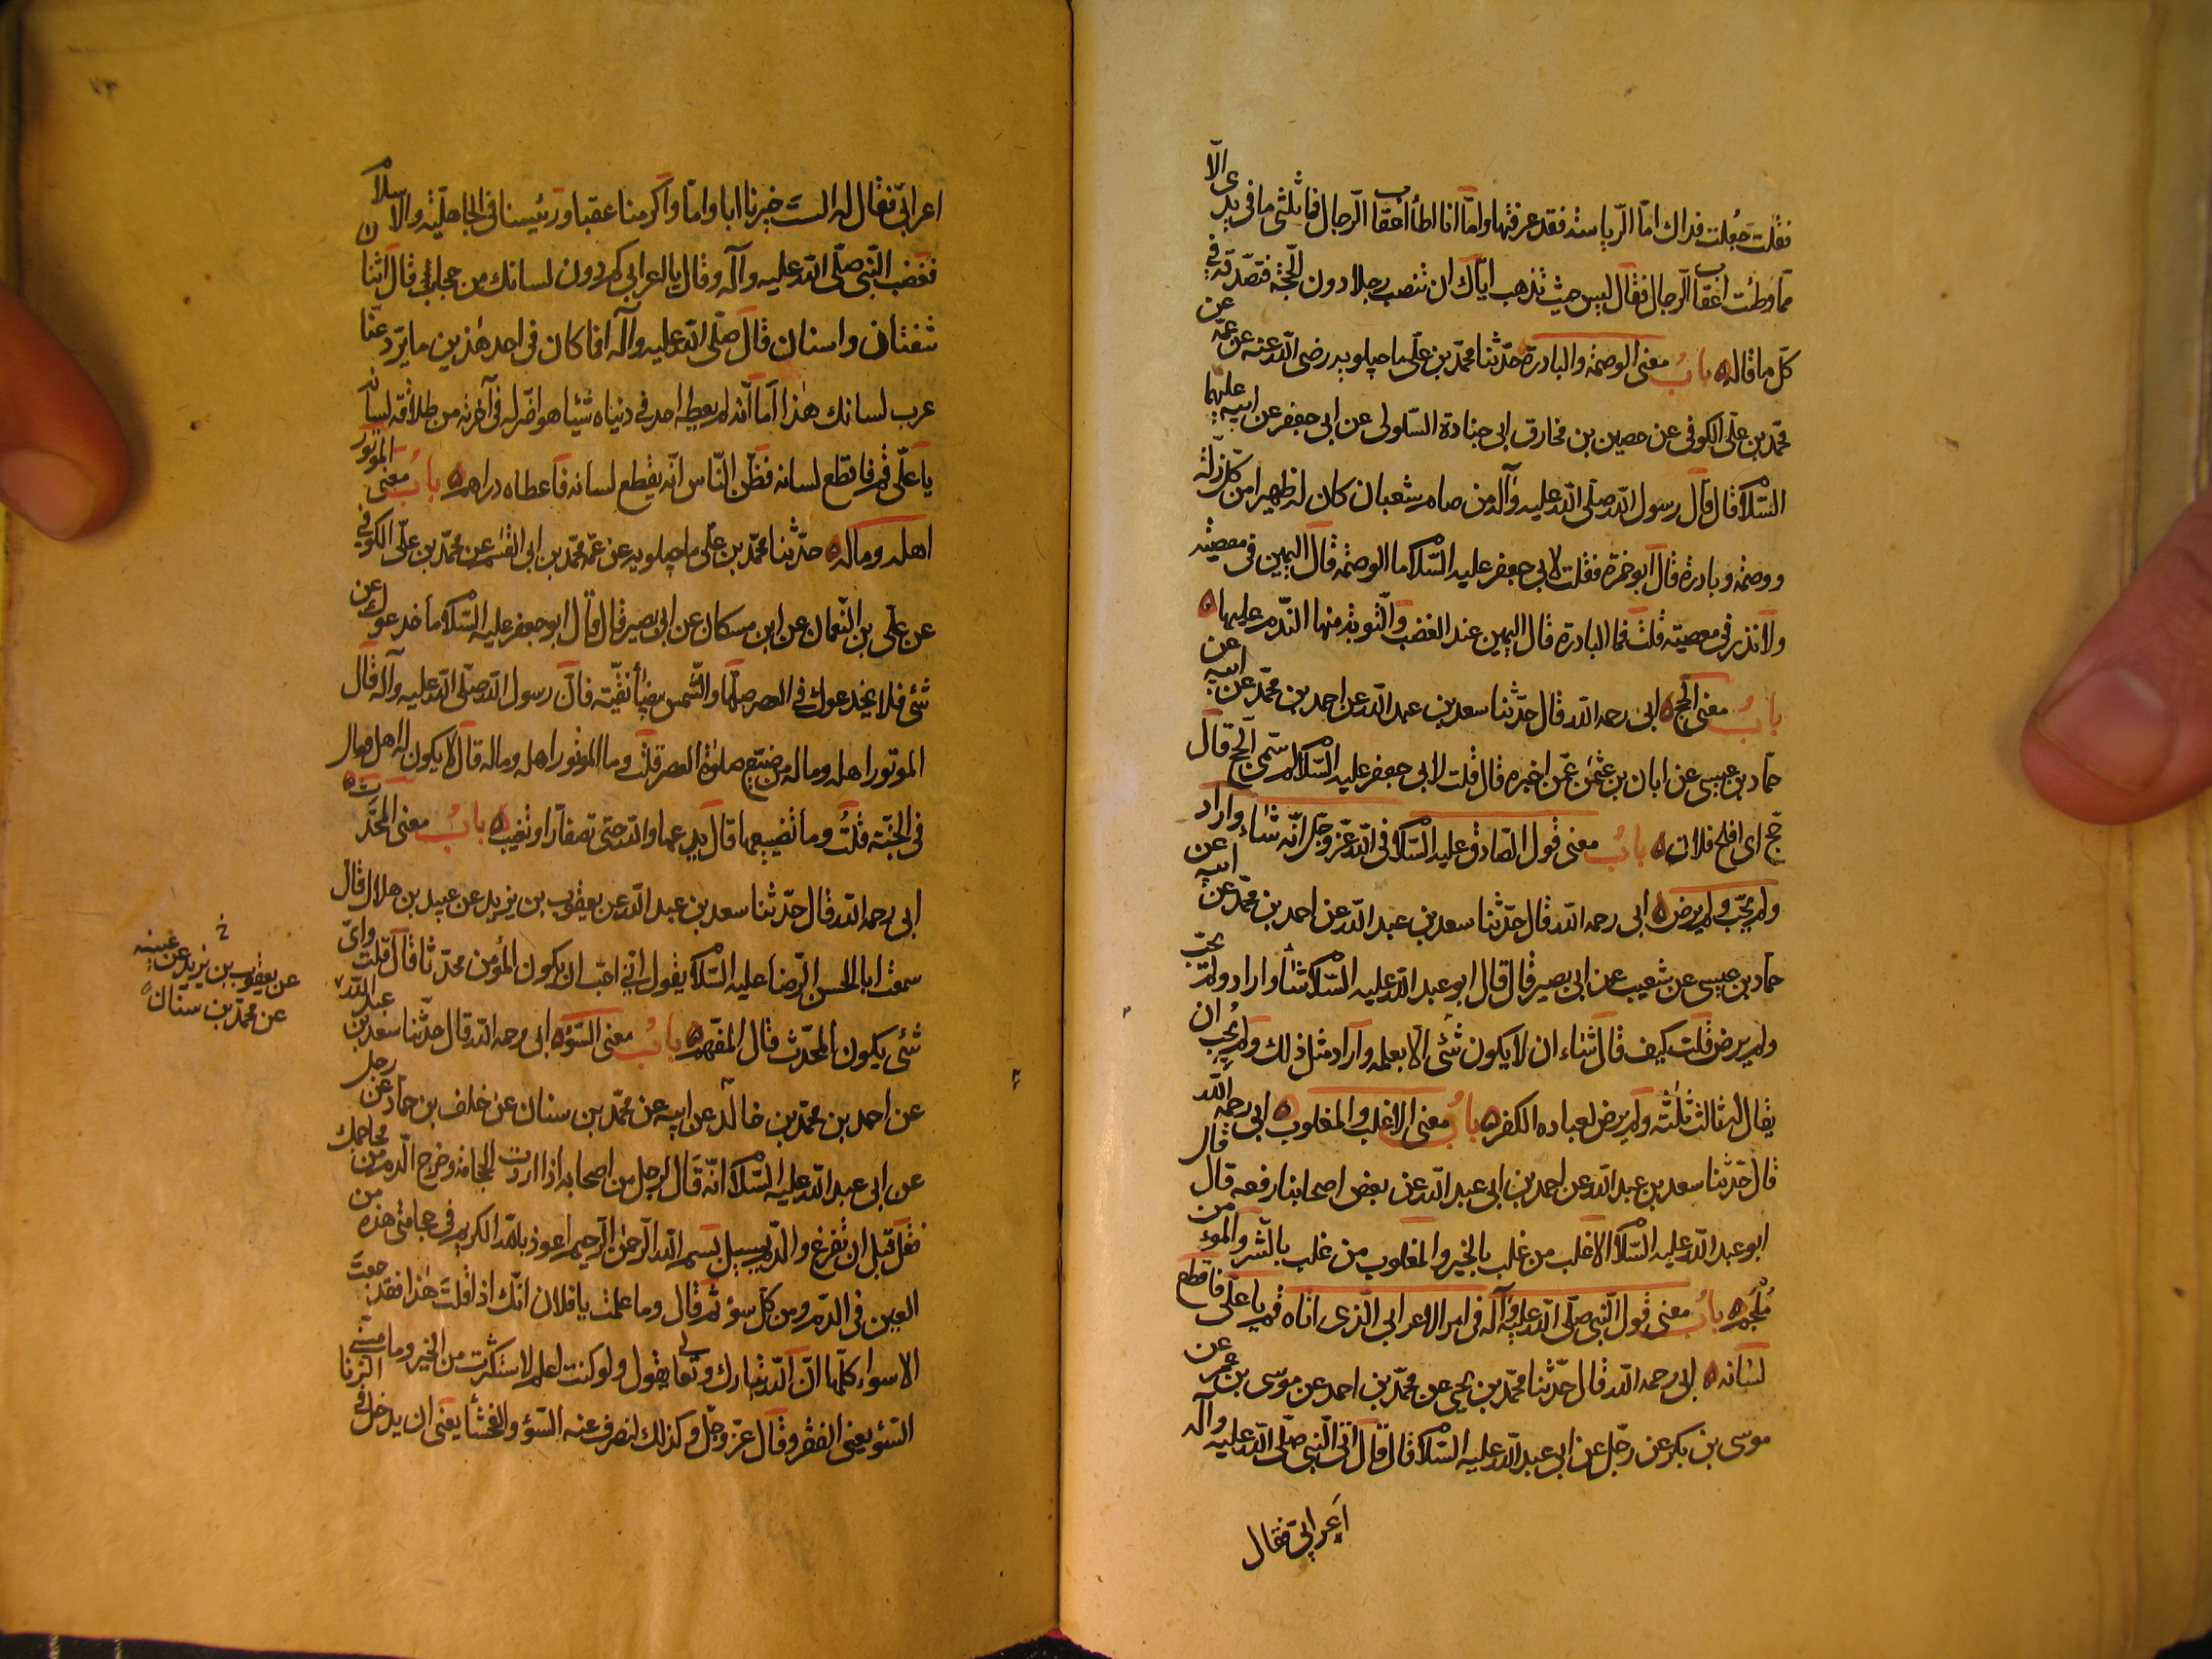 فقلت جعلت فداك امّا الرّياسة فقد عرفتها وامّا انا اطأ اعقاب الرّجال فما ثلثي ما في يدي الّا
ممّا وطئت اعقاب الرّجال فقال ليس حيث تذهب ايّاك ان تنصب رجلا دون الحجّة فتصدّقه في
كلّ ما قاله باب معنى الوصمة والبادرة حدّثنا محمّد بن علي ماجيلويه رضى الله عنه عن عمّه عن
محمّد بن علّى الكوفى عن حصين بن مخارق ابى جنادة السّلولى عن ابى جعفر عن ابيه عليهما
السّلام قال قال رسول الله صلّى الله عليه وآله من صام شعبان كان له ظهيرا من كلّ زلّة
ووصمة وبادرة قال ابو حمزة فقلت لابى جعفر عليه السّلام ما الوصمة قال اليمين في معصية
ولا نذر في معصية قلت فما البادرة قال اليمين عند الغضب والتّوبة منها النّدم عليها
باب معنى الحج ابى رحمه الله قال حدّثنا سعد بن عبد الله عن احمد بن محمّد عن ابيه عن
حمّاد بن عيسى عن ابان بن عثمن عمّن اخبره قال قلت لابى جعفر عليه السّلام لم سمّى الحجّ قال
حجّ اى افلح فلان باب معنى قول الصّادق عليه السّلام في الله عزّ وجلّ انّه شاء واراد
ولم يحبّ ولم يرض ابى رحمه الله قال حدّثنا سعد بن عبد الله عن احمد بن محمّد عن ابيه عن
حمّاد بن عيسى عن شعيب عن ابى بصير قال قال ابو عبد الله عليه السّلام شاء واراد ولم يحبّ
ولم يرض قلت كيف قال شاء ان لا يكون شئ الّا بعلمه واراد مثل ذلك ولم يحبّ ان
يقال له ثالث ثلثة ولم يرض لعباده الكفر باب معنى الاغلب والمغلوب ابى رحمه الله
قال حدّثنا سعد بن عبد الله عن احمد بن ابى عبد الله عن بعض اصحابنا رفعه قال قال
ابو عبد الله عليه السّلام الاغلب من غلب بالخير والمغلوب من غلب بالشّر والمؤمن
مُلجم باب معنى قول النّبى صلّى الله عليه وآله في امر الاعرابي الّذى اتاه قم يا علّى فاقطع
لسانه ابى رحمه الله قال حدّثنا محمّد بن يحيى عن محمّد بن احمد عن موسى بن عمر عن
موسى بن بكر عن رجل عن ابى عبد الله عليه السّلام قال قال اتى النّبى صلّى الله عليه وآله
اعرابىّ فقال
اعرابىّ فقال له الست خيرنا ابا وامّا واكرمنا عقبا ورئيسنا في الجاهليّة والاسلام
فغضب النّبى صلّى الله عليه وآله وقال يا اعرابي كم دون لسانك من حجاب قال اثنان
شفتان واسنان قال صلّى الله عليه وآله افما كان في احد هذين ما يرّد عنّا
غرب لسانك هذا اما انّه لم يعط احد في دنياه شيئا هو اضرّ له في آخرته من طلاقة لسانه
يا علّى قم فاقطع لسانه فظنّ النّاس انّه يقطع لسانه فاعطاه دراهم باب معنى الموتور
اهله وماله حدّثنا محمّد بن علّى ماجيلويه عن عمّه محمّد بن ابى القسم عن محمّد بن علّى الكوفي
عن علّى بن النّعمان عن ابن مسكان عن ابى بصير قال قال ابو جعفر عليه السّلام ما خدعوك عن
شئ فلا يخدعوك في العصر صلّها والشّمس بيضاء نقيّة فانّ رسول الله صلّى الله عليه وآله قال
الموتور اهله وماله من ضيّع صلوة العصر قلت وما الموتور اهله وماله قال لا يكون له اهل ومال
في الجنّة قلتُ وما تضييعها قال يدعها والله حتى تصفارّ او تغيب باب معنى المحدّث
ابى رحمه الله قال حدّثنا سعد بن عبد الله عن يعقوب بن يزيد عن عبيد بن هلال قال
سمعت ابا الحسن الرّضا عليه السّلام يقول انى احبّ ان يكون المؤمن محدّثا قال قلت واىّ
شئ يكون المحدّث قال المفهّم باب معنى السّوء ابى رحمه الله قال حدّثنا سعد بن عبد الله
عن احمد بن محمّد بن خالد عن ابيه عن محمّد بن سنان عن خلف بن حمّاد عن رجل
عن ابى عبد الله عليه السّلام انّه قال لرجل من اصحابه اذا اردت الحجامة وخرج الدّم من محاجمك
فقل قبل ان تفرغ والدّم يسيل بسم الله الرّحمن الرّحيم اعوذ بالله الكريم في حجامتى هذه من
العين في الدّم ومن كلّ سوء ثم قال وما علمت يا فلان انّك اذا قلت هذا فقد جمعت
الاسواء كلّها انّ الله تبارك وتعالى يقول ولو كنت اعلم لاستكثرت من الخير وما مسّنى
السّوء يعنى الفقر وقال عزّ وجلّ وكذلك لنصرف عنه السّوء والفحشاء يعنى ان يدخل في الزنا
عن يعقوب بن يزيد عن
عن محمّد بن سنان